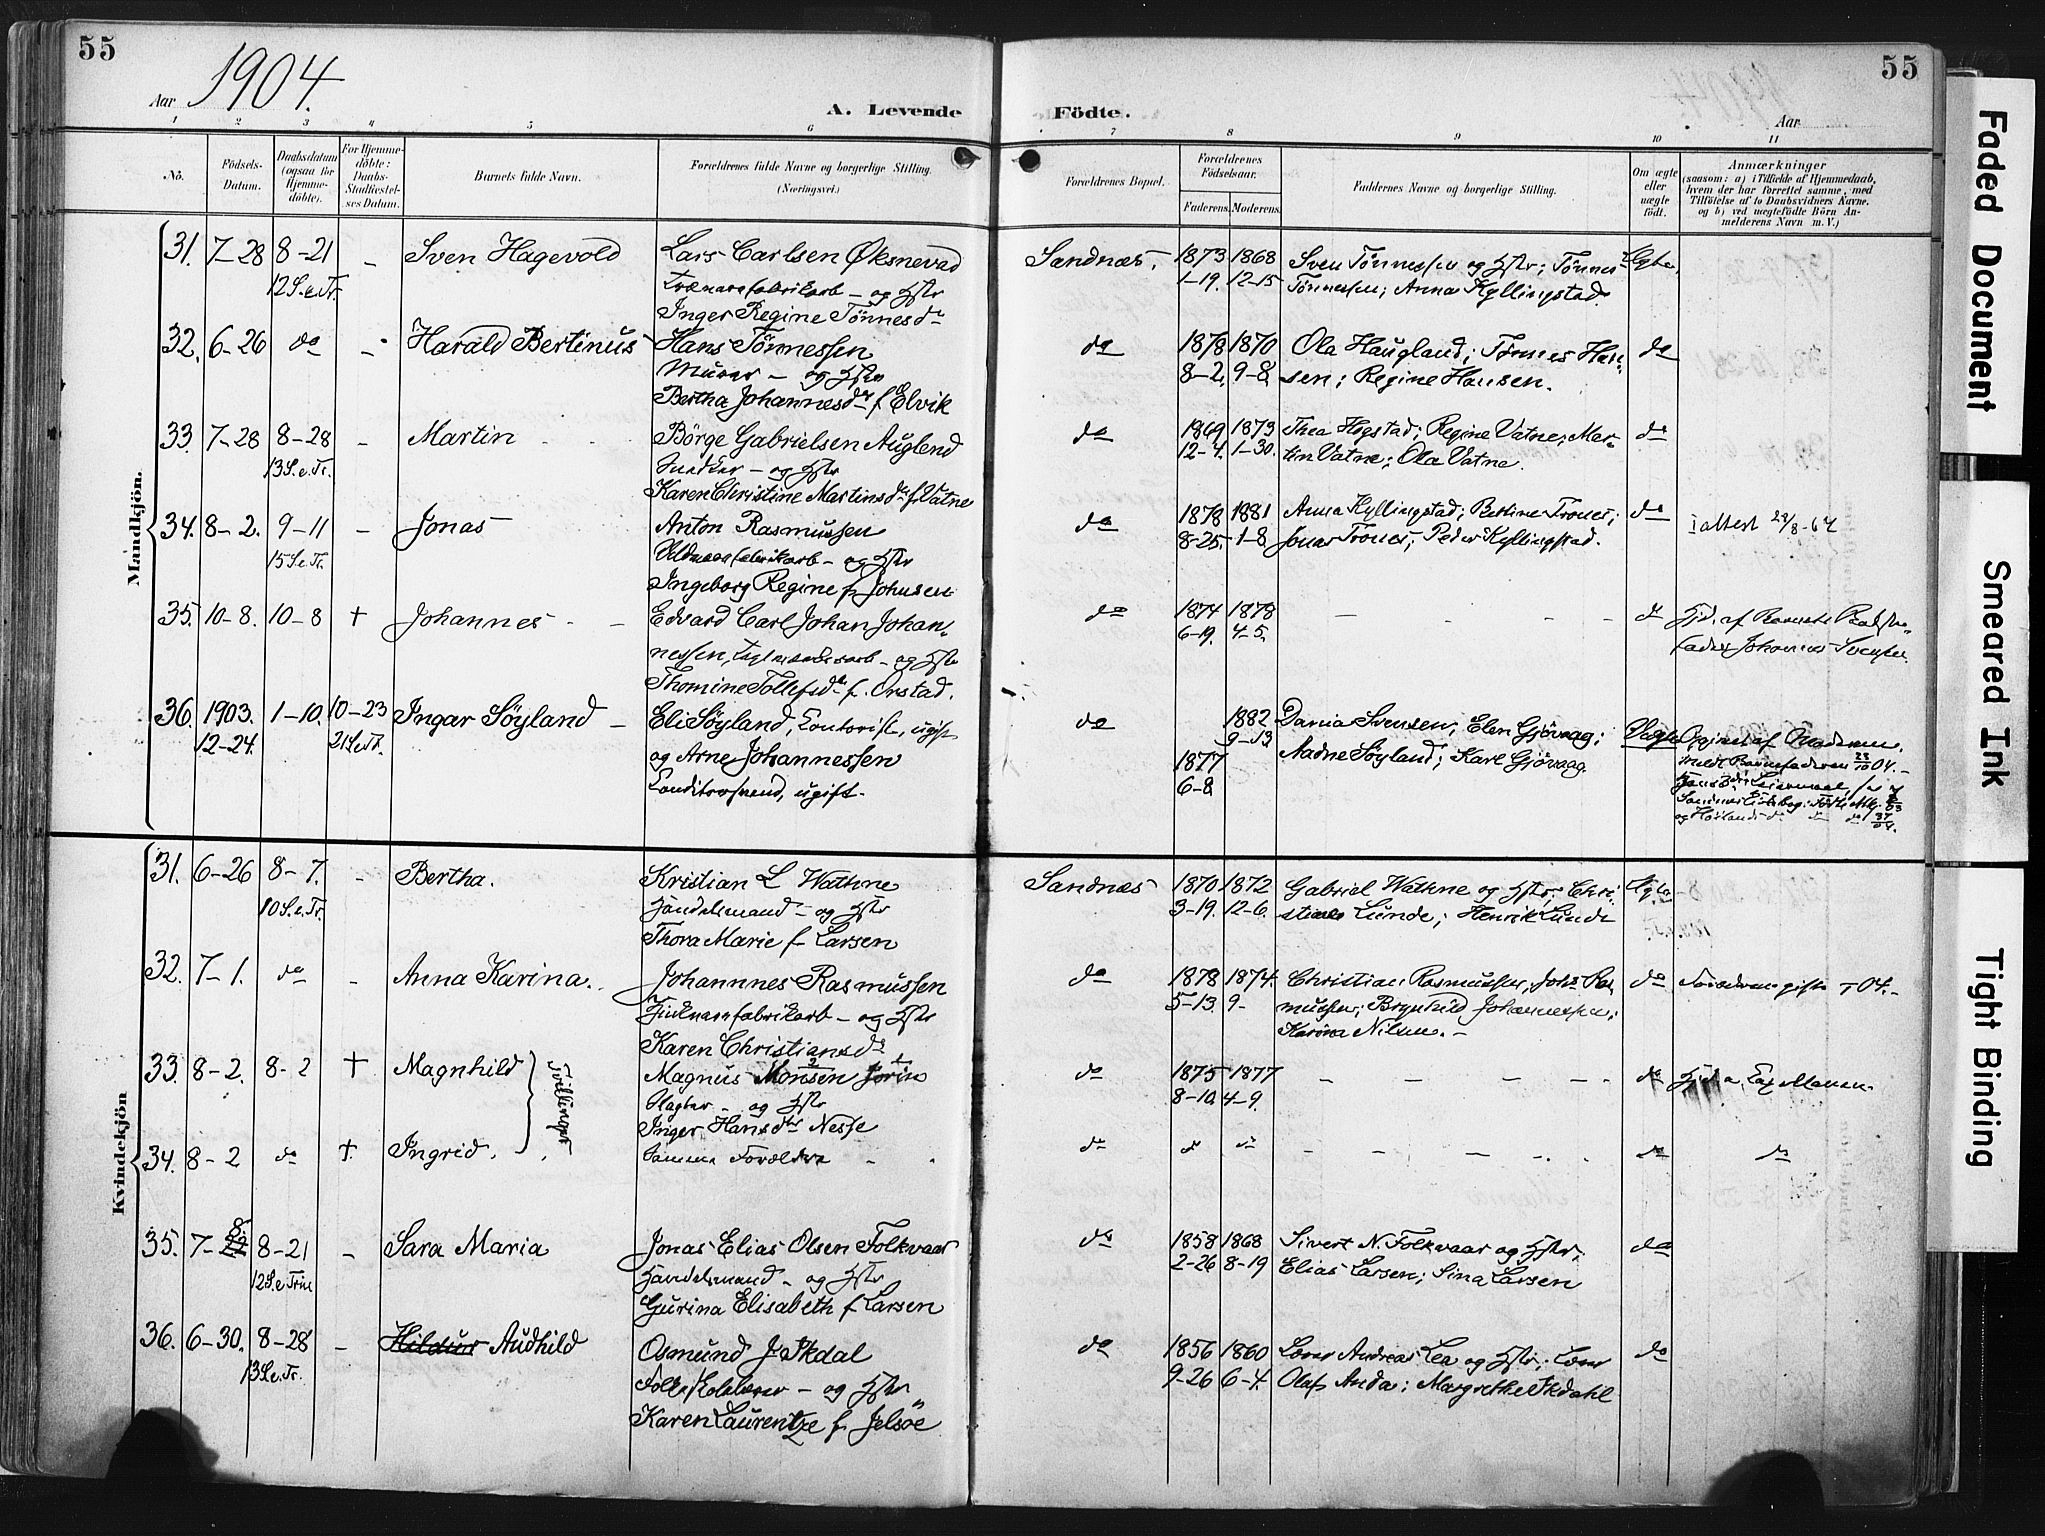 55
Aar 1904.
A. Levende
1 2 3 4 5 6
No.
Födsels-
Datum.
Daabsdatum
(ogsaa for
Hjemme-
döbte).
For Hjemme-
döbte:
Daabs-
Stadfæstel-
ses Datum.
Barnets fulde Navn.
Forældrenes fulde Navne og borgerlige Stilling.
(Næringsvei.)
Mandkjön.
31. 7–28 8–21 – Sven Hagevold Lars Carlsen Øksnevad
12 S. e. Tr. – og Hstr
Inger Regine Tönnesdr
32. 6–26 do – Harald Bertinus Hans Tönnessen
Murer – og Hstr
Bertha Johannesdr f. Elvik
33. 7–28 8–28 – Martin Börge Gabrielsen Auglend
13 S. e. Tr. Snedker – og Hstr
Karen Christine Martinsdr f. Vatne
34. 8–2. 9–11 – Jonas Anton Rasmussen
15 S. e. Tr. Uldvarefabrikarb – og Hstr
Ingeborg Regine f. Johnsen
35. 10–8. 10–8 † Johannes Edvard Carl Johan Johan-
nessen, – og Hstr
Thomine Tollefsdr f. Orstad.
36. 1903. 1–10. 10–23 Ingar Söyland – Eli Söyland, Kontorist, ugift
12–24. 21 S. e. Tr. og Arne Johannessen
Konditorsvend, ugift.
Kvindekjön
31. 6–26 8–7. – Bertha. Kristian L Wathne
10 S. e. Tr. Handelsmand – og Hstr
Thora Marie f. Larsen
32. 7–1. do – Anna Karina. Johannnes Rasmussen
fabrikarb – og Hstr
Karen Christiansdr
33. 8–2. 8–2 † Magnhild Magnus Monsen
Tvillinger
Slagter – og Hstr
Inger Hansdtr Nesse
34. 8–2 do †. Ingrid. Samme Forældre
35. 7– 8 8–21 – Sara Maria Jonas Elias Olsen Folkvaar
12 S. e. Trin Handelsmand – og Hstr
Gurina Elisabeth f. Larsen
36. 6–30. 8–28 – Hildur Audhild Osmund J. Skdal
13 S. e. Tr. Folkeskolelærer – og Hstr
Karen Laurentze f. Jelsöe
55
Födte.
Aar
7 8 9 10 11
Forældrenes Bopæl.
Forældrenes
Födselsaar.
Faderens. Moderens.
Faddernes Navne og borgerlige Stilling.
Om ægte
eller
uægte
födt.
Anmærkninger
(saasom: a) i Tilfælde af Hjemmedaab,
hvem der har forrettet samme, med
Tilföielse af to Daabsvidners Navne.
og b) ved uægtefödte Börn An-
melderens Navn m. V.)
Sandnæs. 1873 1868 Sven Tönnessen og Hstr; Tönnes Ægte.
1–19. 12–15 Tönnessen; Anna Kyllingstad.
do 1878 1870 Ola Haugland; Tönnes Han- do
8–2. 9–8. sen; Regine Hansen.
do 1869 1873 Thea Hogstad; Regine Vatne; Mar- do
12–4. 1–30. tin Vatne; Ola Vatne.
do 1878 1881 Anna Kyllingstad; Bertine Trones; do
8–25. 1–8 Jonas Trones; Peder Kyllingstad.
do 1874 1878 – – – – do Hjd. af Barnets
6–19. 4–5. fader Johannes
do 1882 Dania Svensen; Elen Gjövaag; Uægte Opgivet af Moderen.
9–13 Nadne Söyland; Karl Gjövaag.
1877
6–8.
Sandnæs 1870 1872 Gabriel Wathne og Hstr; Chri- Ægte
3–19. 12–6. stiane Lunde; Henrik Lunde
do 1878 1874. Christian Rasmussen, Johs Ras- do
5–13. 9– mussen; Brynhild Johannessen;
Karina Nilsen. –
do 1875 1877 – – – – do
8–10. 4–9.
do do do – – – – do do
do 1858 1868 Sivert N. Folkvaar og Hstr; do
2–26 8–19 Elias Larsen; Sina Larsen
do 1856 1860 Lærer Andreas Lea og Hstr; Lærer do
9–26 6–4. Olaf Anda; Margrethe Skdahl
Faded Document
Smeared Ink
Tight Binding